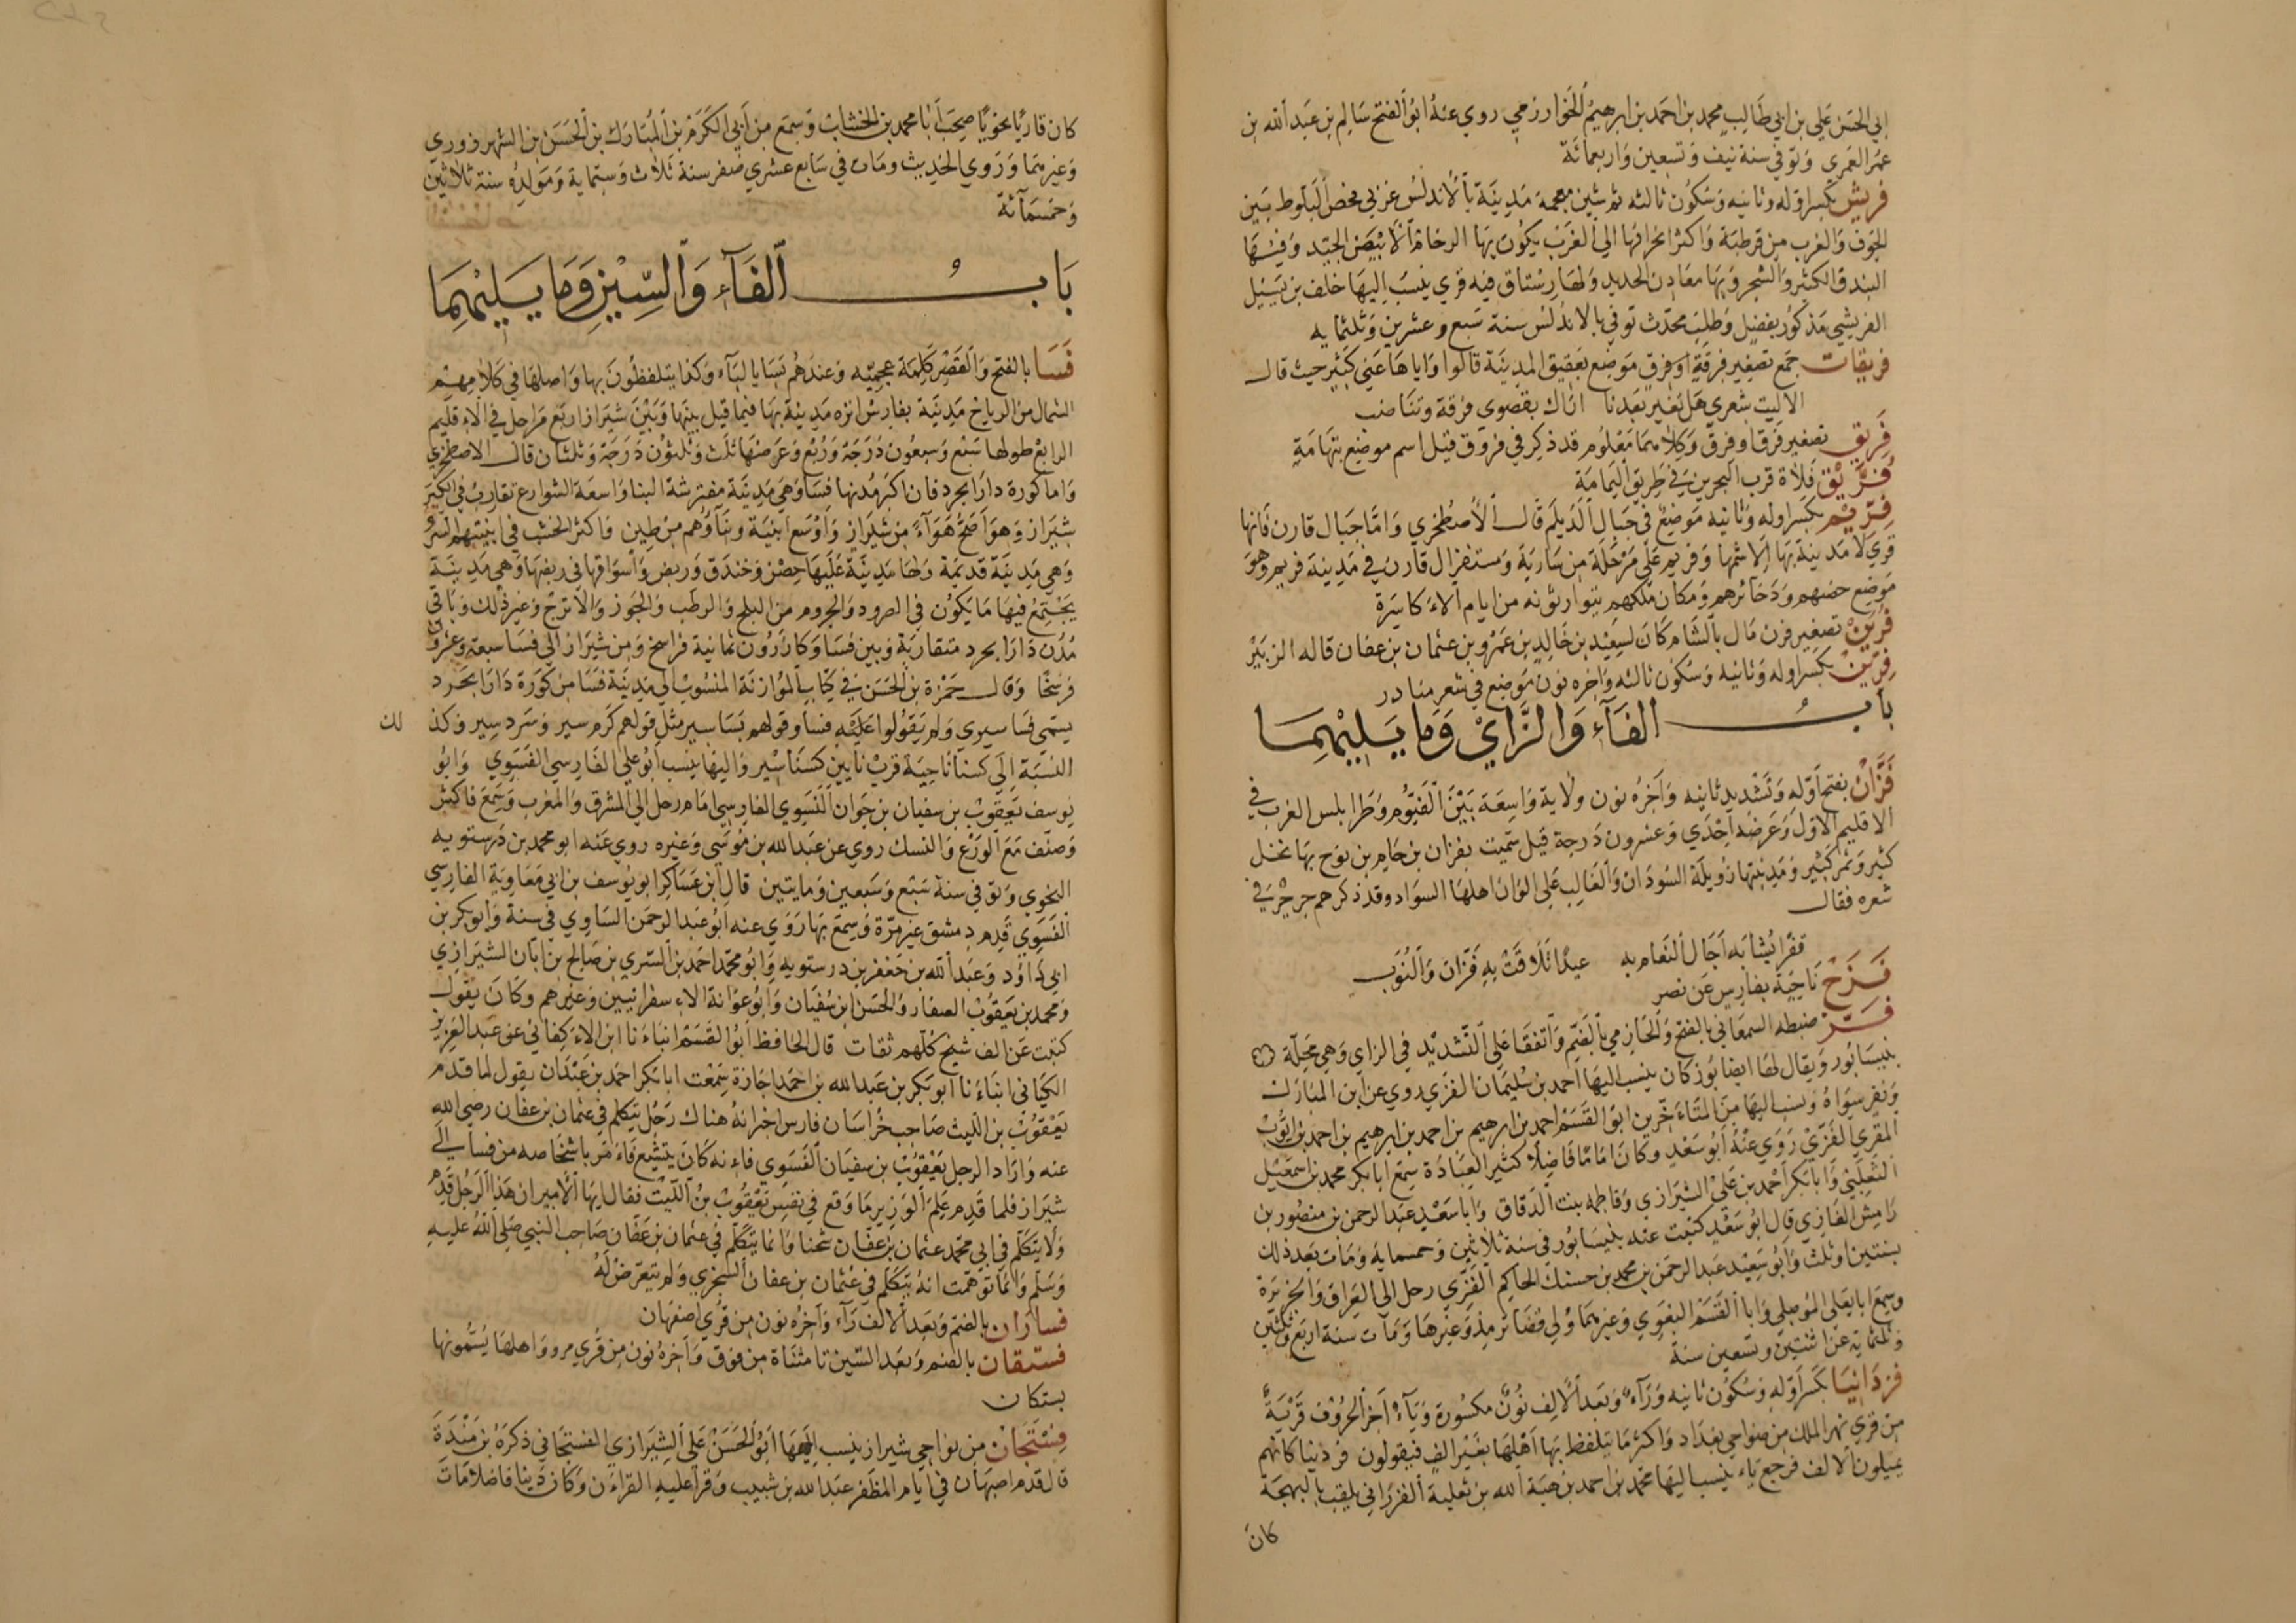 ابي الحسن علي بن ابي طالب محمد بن احمد بن ابرهيم الخوارزمي روي عنه ابو الفتح سالم بن عبد الله بن
عمر العمري وتوفي سنة نيف وتسعين واربعمائة
فريش بكسر اوله وثانيه وسكون ثالثه ثم شين معجمة مدينة بالاندلس غزبي فحص البلوط بين
الجوف والغرب من قرطبة واكثر انحرافها الي الغرب يكون بها الرخام الابيض الجيد وفيها
البندق الكثير والشجر وبها معادن الحديد ولها رستاق فيه قري ينسب اليها خلف بن
الفريشي مذكور بفضل وطلب محدث توفي بالاندلس سنة سبع وعشرين وثلثمايه
فريقات جمع تصغير فرقة او فرق موضع بعقيق المدينة قالوا واياها عني كثير حيث قال
الا ليت شعري هل تغير بعدنا اراك بقصوي فرقة وتناضب
فريق تصغير فرق او فرق وكلاهما معلوم قد ذكر في فروق قيل اسم موضع بتهامة
فريق فلاة قرب البحرين في طريق اليمامة
فريم بكسر اوله وثانيه موضع في جبال الديلم قال الاصطخري واما جبال قارن فانها
قري لا مدينة بها الا شمها وفريم علي مرحلة من سارية ومستقر ال قارن في مدينة فريم وهو
موضع حصنهم وذخائرهم ومكان ملكهم يتوارثونه من ايام الاكاسرة
فرين تصغير فرن مال بالشام كان لسعيد بن خالد بن عمرو بن عثمان بن عفان قاله الزبير
فرين بكسر اوله وثانيه وسكون ثالثه واخره نون موضع في شعر
باب الفاء والزاي وما يليهما
فزان بفتح اوله وتشديد ثانيه واخره نون ولاية واسعة بين الفيوم وطرابلس الغرب في
الاقليم الاول وعرضه احدي وعشرون درجة قيل سميت بفزان بن حام بن نوح بها نخل
كثير وتمر كثير ومدينتها زويلة السودان والغالب علي الوان اهلها السواد وقد ذكرهم جرير في
شعره فقال
قفرا تشابه اجال النعام به عيدا تلاقت به فزان والنوب
فزح ناحية بفارس عن نصر
فز ضبطه السمعاني بالفتح والحازمي بالضم واتفقا علي التشديد في الزاي وهي محلة
بنيسابور ويقال لها ايضا بوزكان ينسب اليها احمد بن سليمان الفزي روي عن ابن المبارك
ونفر سواه ونسب اليها من المتاخرين ابو القسم احمد بن ابرهيم بن احمد بن ابرهيم بن احمد بن ايوب
المقري الفزي روي عنه ابو سعد وكان اماما فاضلا كثير العبادة سمع ابا بكر محمد بن اسمعيل
التفليسي وابا بكر احمد بن علي الشيرازي وفاطمه بنت الدقاق وابا سعيد عبد الرحمن بن منصور بن
رامش الغازي قال ابو سعد كتبت عنه بنيسابور في سنة ثلاثين وخمسمايه ومات بعد ذلك
بسنتين او ثلث وابو سعيد عبد الرحمن بن محمد بن حسنك الحاكم الفزي رحل الي العراق والجزيرة
وسمع ابا يعلي الموصلي وابا القسم البغوي وغيرهما وولي قضا ترمذ وغيرها ومات سنة اربع وثلثين
وثلثماية عن اثنتين وتسعين سنة
فزدانيا بكسر اوله وسكون ثانيه وراء وبعد الالف نون مكسورة وياء اخر الحروف قرية
من قري نهر الملك من ضواحي بغداد واكثر ما يتلفظ بها اهلها بغير الف فيقولون فزدينا كانهم
يميلون الالف فرجع ياء ينسب اليها محمد بن احمد بن هبة الله بن ثعلبة الفزراني يلقب بالبهجة
كان
كان قاريا نحويا صحب ابا محمد بن الخشاب وسمع من ابي الكرم بن المبارك بن الحسن بن الشهرزوري
وغيرهما وروي الحديث ومات في سابع عشري صفر سنة ثلاث وستماية ومولده سنة ثلاثين
وخمسمائة
باب الفاء والسين وما يليهما
فسا بالفتح والقصر كلمة عجميه وعندهم بسا بالباء وكذا يتلفظون بها واصلها في كلامهم
الشمال من الرياح مدينة بفارس انزه مدينة بها فيما قيل بينها وبين شيراز اربع مراحل في الاقليم
الرابع طولها سبع وسبعون درجة وربع وعرضها ثلث وثلثون درجة وثلثان قال الاصطخري
واما كورة دارابجرد فان اكبر مدنها فسا وهي مدينة مفترشة البنا واسعة الشوارع تقارب في الكبر
شيراز وهو اصح هواء من شيراز واوسع ابنية وبناؤهم من طين واكثر الخشب في ابنيتهم السرو
وهي مدينة قديمة ولها مدينة عليها حصن وخندق وربض واسواقها في ربضها وهي مدينة
يجتمع فيها ما يكون في الصرود والجروم من البلح والرطب والجوز والاترج وغير ذلك وباقي
مدن دارابجرد متقاربة وبين فسا وكازرون ثمانية فراسخ ومن شيراز الي فسا سبعة وعشرون
فرسخا وقال حمزة بن الحسن في كتاب الموازنة المنسوب الي مدينة فسا من كورة دارابجرد
يسمي فسا سيري ولم يقولوا عليه فسا وقولهم بسا سير مثل قولهم كرم سير وسرد سير وكذ
لك
النسبة الي كسنا ناحية قرب نايين كسنا سير واليها ينسب ابو علي الفارسي الفسوي وابو
يوسف يعقوب بن سفيان بن جوان الفسوي الفارسي امام رحل الي المشرق والمغرب وسمع فاكثر
وصنف مع الورع والنسك روي عن عبد الله بن موسي وغيره روي عنه ابو محمد بن درستويه
النحوي وتوفي سنة سبع وسبعين ومايتين قال ابن عساكر ابو يوسف بن ابي معاوية الفارسي
الفسوي قدم دمشق غير مرة وسمع بها روي عنه ابو عبد الرحمن الساوي في سننه وابو بكر بن
ابي داود وعبد الله بن جعفر بن درستويه وابو محمد احمد بن السري بن صالح بن ابان الشيرازي
ومحمد بن يعقوب الصفار والحسن بن سفيان وابو عوانة الاسفراييني وغيرهم وكان يقول
كتبت عن الف شيخ كلهم ثقات قال الحافظ ابو القسم انباءنا ابن الاكفاني عن عبد العزيز
الكياني انباءنا ابو بكر بن عبد الله بن احمد اجازة سمعت ابا بكر احمد بن عبدان يقول لما قدم
يعقوب بن الليث صاحب خراسان فارس اخبر انه هناك رجل يتكلم في عثمان بن عفان رضي الله
عنه واراد الرجل يعقوب بن سفيان الفسوي فانه كان يتشيع فامر باشخاصه من فسا الي
شيراز فلما قدم علم الوزير ما وقع في نفس يعقوب بن الليث فقال ايها الامير ان هذا الرجل قدم
ولا يتكلم في ابي محمد عثمان بن عفان شيخنا وانما يتكلم في عثمان بن عفان صاحب النبي صلي الله عليه
وسلم وانما توهمت انه يتكلم في عثمان بن عفان السجزي ولم يتعرض له
فساران بالضم وبعد الالف راء واخره نون من قري اصفهان
فستقان بالضم وبعد السين تا مثناة من فوق واخره نون من قري مرو واهلها يسمونها
بستكان
فستجان من نواحي شيراز ينسب اليها ابو الحسن علي الشيرازي الفستجاني ذكره بن مندة
قال قدم اصبهان في ايام المظفر عبد الله بن شبيب وقرا عليه القران وكان دينا فاضلا مات